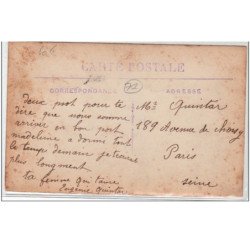 CARTE POSTALE
CORRESPONDANCE
ADRESSE
72
deux mot pour te
dire que nous somme
arriver en bon port
madeleine a dormi tout
le temps demain je t'ecrirai
plus longment
ta femme qui t'aime
Eugénie Quintar
Mr Quintar
189 Avenue de
Paris
Seine